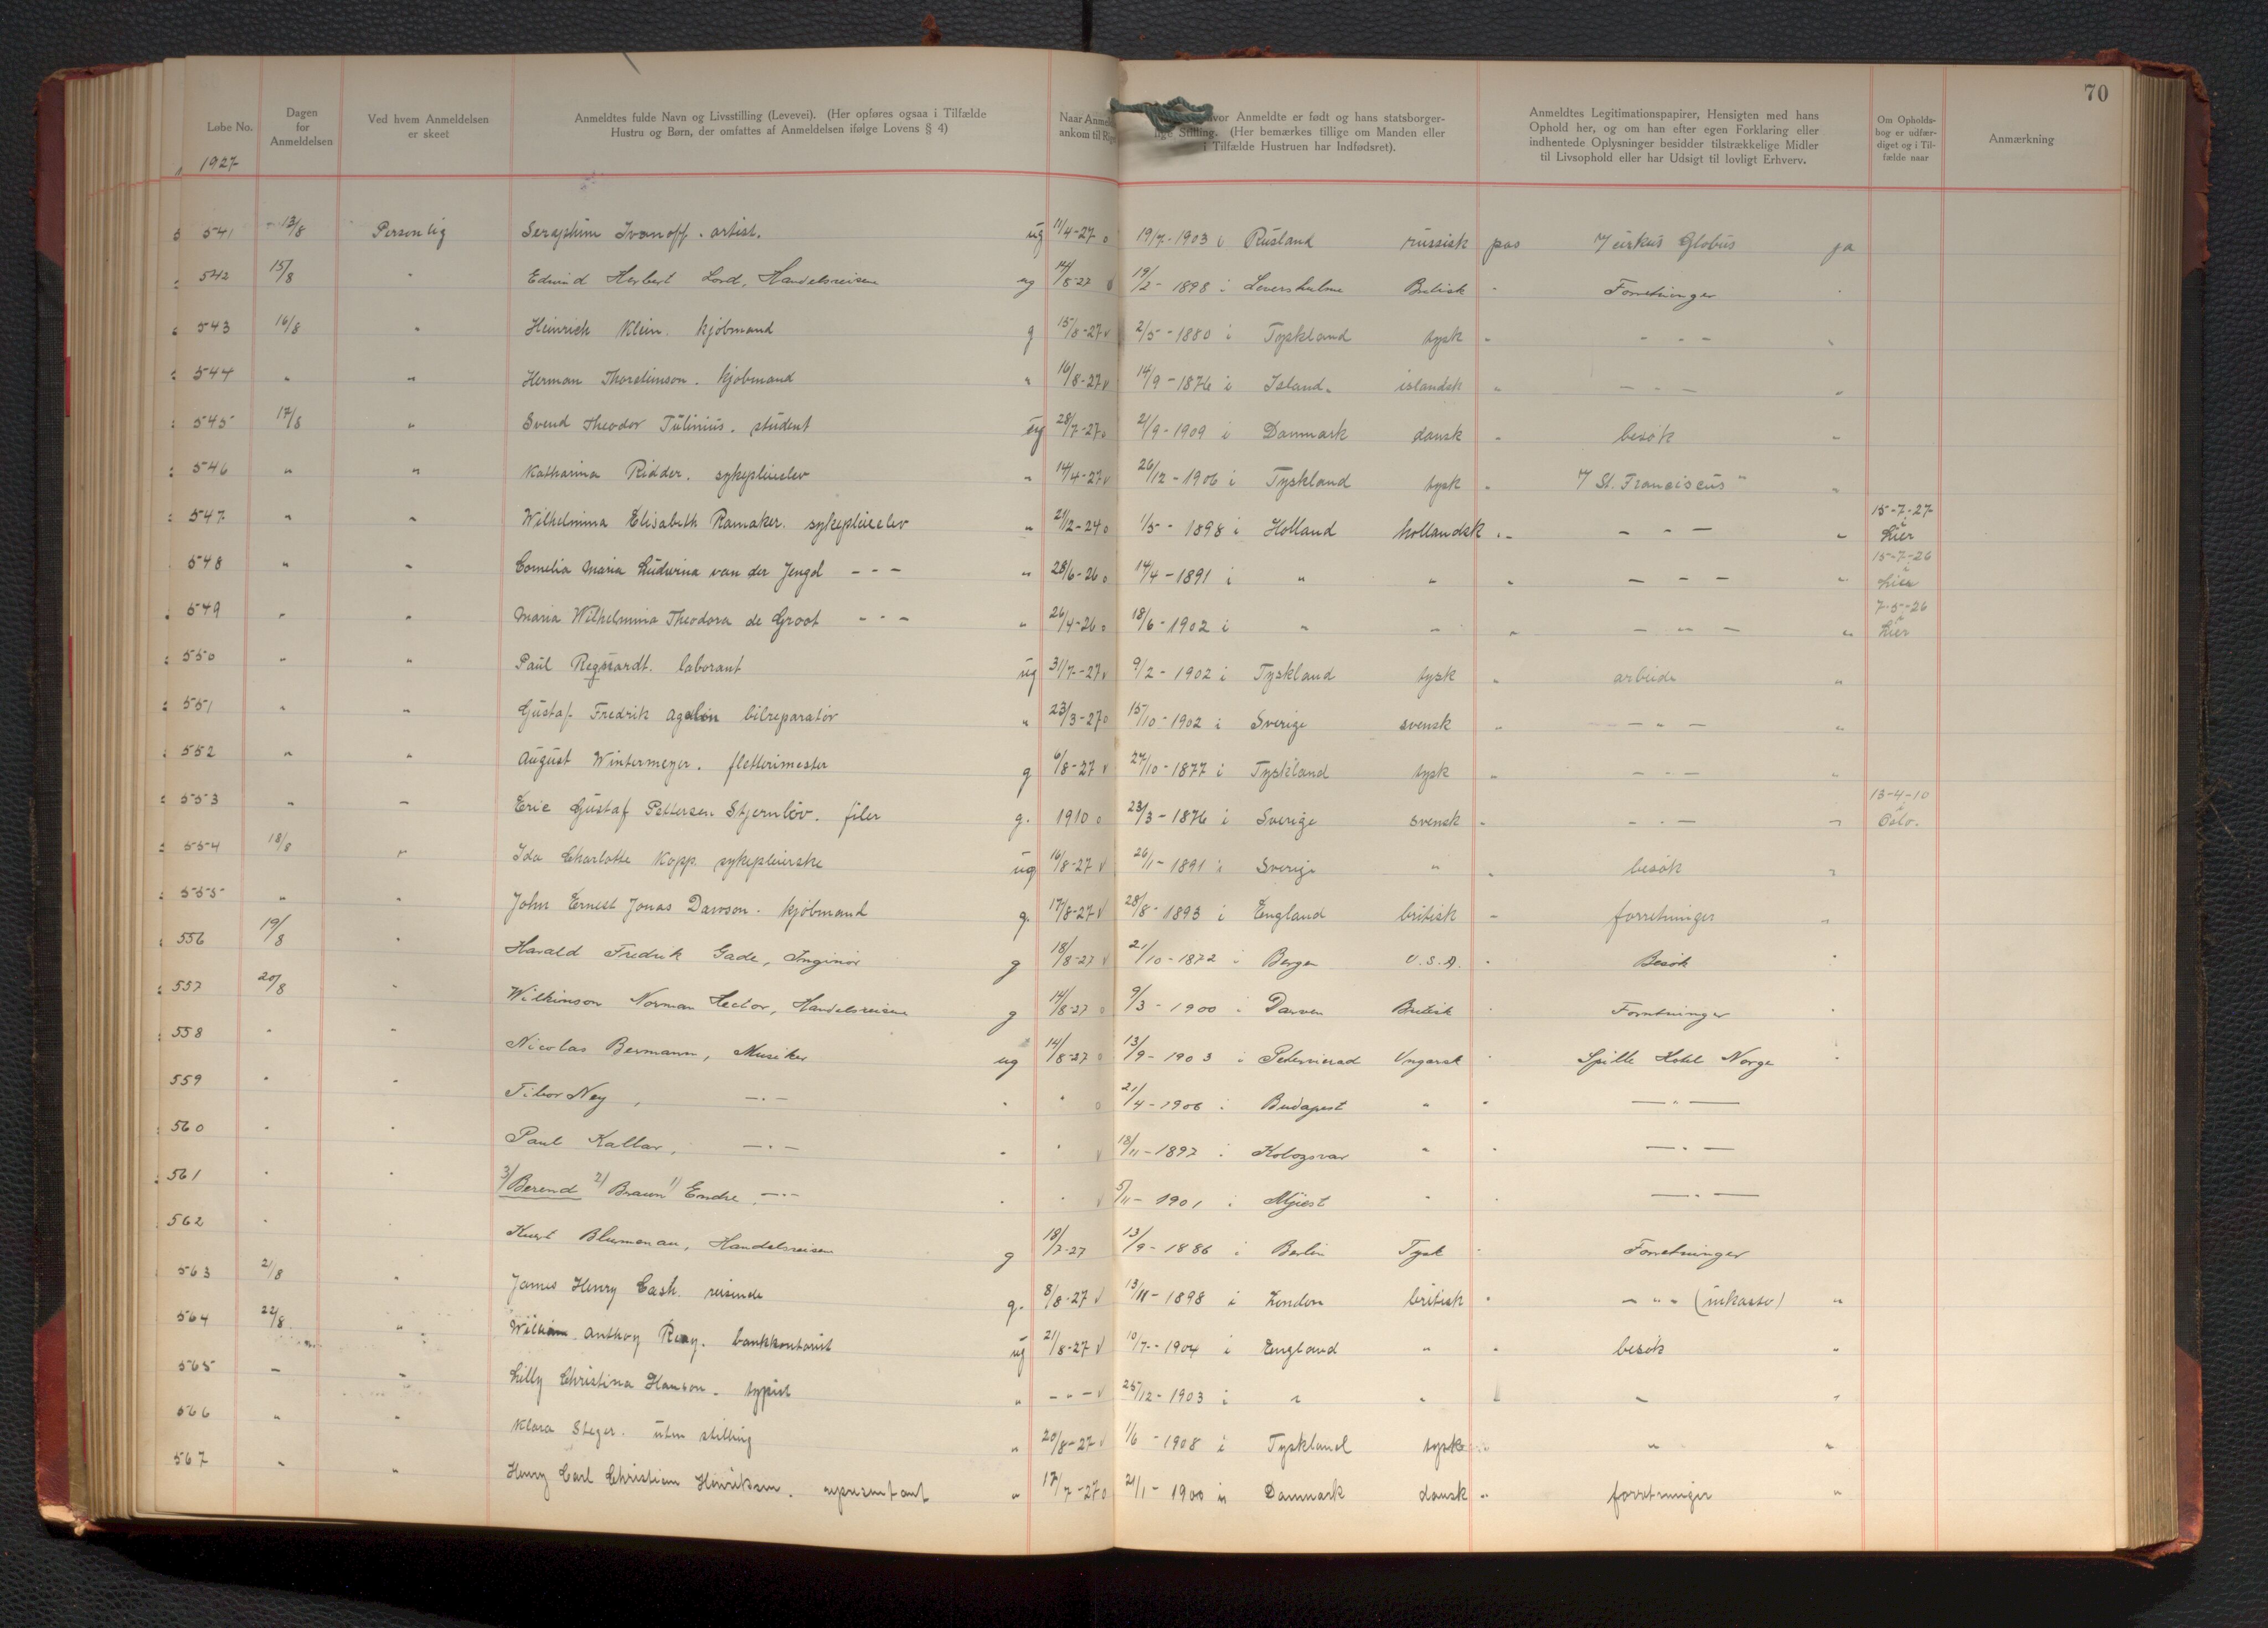 70
Løbe No. Dagen for Anmeldelsen Ved hvem Anmeldelsen er skeet Anmeldtes fulde Navn og Livsstilling (Levevei). (Her opføres ogsaa i Tilfælde Hustru og Børn, der omfattes af Anmeldelsen ifølge Lovens § 4) Naar Anme ankom til Rig vor Anmeldte er født og hans statsborgerlige Stilling. (Her bemærkes tillige om Manden eller i Tilfælde Hustruen har Indfødsret). Anmeldtes Legitimationspapirer, Hensigten med hans Ophold her, og om han efter egen Forklaring eller indhentede Oplysninger besidder tilstrækkelige Midler til Livsophold eller har Udsigt til lovligt Erhverv. Om Opholdsbog er udfærdiget og i Tilfælde naar Anmærkning
1927
541 13/8 Personlig Seraphim Ivanoff. artist. ug 11/4-27 o 19/7-1903 i Rusland russisk pas Cirkus Globus ja
542 15/8 " Edmund Herbert Lord, Handelsreisen ug 14/8-27 19/2-1898 i Levershulme Britisk " Forretninger "
543 16/8 " Heinrich Klein. kjöbmand g 15/8-27 v 2/5-1880 i Tyskland tysk " " - "
544 " " Herman Thorsteinson. kjöbmand " 16/8-27 v 14/9-1876 i Island. islandsk " - " - "
545 17/8 " Svend Theodor Tulinius. student ug 28/7-27 o 21/9-1909 i Danmark dansk " besök "
546 " " Katharina Ridder. sykepleieelev " 14/4-27 v 26/12-1906 i Tyskland tysk " St. Franciscus " "
547 " " Wilhelmina Elisabeth Ramaker. sykepleieelev " 21/2-24 o 1/5-1898 i Holland hollandsk " - " - " 15-7-27 i Lier
548 " " Cornelia Maria Ludwina van der Jengel - " - " 28/6-26 o 14/4-1891 i " " " - " - " 15-7-26 i Lier
549 " " Maria Wilhelmina Theodora de Groot - " - " 26/4-26 o 18/6-1902 i " " " - " - " 7-5-26 i Lier
550 " " Paul laborant ug 31/7-27 v 9/2-1902 i Tyskland tysk " arbeide "
551 " " Gustaf Fredrik Agelin bilreparatör " 23/3-27 o 15/10-1902 i Sverige svensk " - " - "
552 " " August Wintermeyer. fletterimester g 6/8-27 v 27/10-1877 i Tyskland tysk " - " - "
553 " " Eric Gustaf Pettersen Stjernlöv. filer g. 1910 o 23/3-1876 i Sverige svensk " - " - " 13-4-10 i Oslo.
554 18/8 " Ida Charlotte Kopp. sykepleierske ug 16/8-27 v 26/1-1891 i Sverige " " besök "
555 " " John Ernest Jonas Dawson. kjöbmand g. 17/8-27 v 28/8-1893 i England britisk " forretninger "
556 19/8 " Harald Fredrik Gade, Inginiör g 18/8-27 v 21/10-1872 i Bergen U.S.A. " Besök "
557 20/8 " Wilkinson Norman Hector, Handelsreisen g 14/8-27 o 9/3-1900 i Darwen Britisk " Forretninger "
558 " " Nicolas Bermann, Musiker ug 14/8-27 o 13/9-1903 i Ungarsk " Spille Hotel Norge "
559 " " Tibor Ney, - " - " " o 21/4-1906 i Budapest " " - " -
560 " " Paul Kallar, - " - " " v 18/11-1897 i Kolozsvar " " - " -
561 " " 3/ Berend 2/ Braun 1/ Endre, - " - " " v 5/11-1901 i " " - " -
562 " Kurt Blumenau, Handelsreisen g 18/7-27 13/9-1886 i Berlin Tysk " Forretninger
563 21/8 " James Henry Cash. reisende g. 8/8-27 v 13/11-1898 i London britisk " - " - (inkasso) "
564 22/8 " William Anthoy Reay. bankkontorist ug 21/8-27 v 10/7-1904 i England " " besök "
565 " " Lilly Christina Hanson. typist " - " - v 25/12-1903 i " " " " "
566 " " Klara Steger. uten stilling " 20/8-27 v 1/6-1908 i Tyskland tysk " " "
567 " " Henry Carl Christian Henriksen. representant " 17/7-27 o 21/1-1900 i Danmark dansk " forretninger "